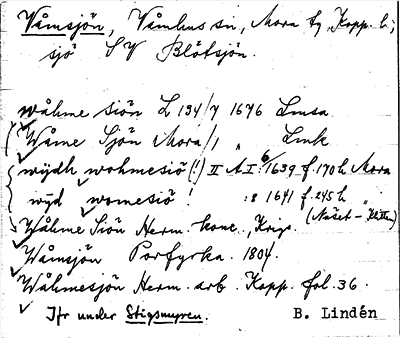 Våmsjön, Våmhus sn, Mora tg, Kopp. l.;
sjö SV Blötsjön.
Wåhme siön L 134/7 1676 Lmsa
Wåme Sjön Mora/1 " Lmk
wijdh wohmesiö (!) II A I:6/1639 f. 170 h Mora
wijd womesiö ! :8 1641 f. 245 h "
(Näset - Klitten)
Wåhme Siön Herm. konc., Krigs.
Wåmsjön Porfyrka. 1804.
Wåhmesjön Herm. arb. Kopp. fol. 36.
Jfr under Stigsmyren. B. Lindén